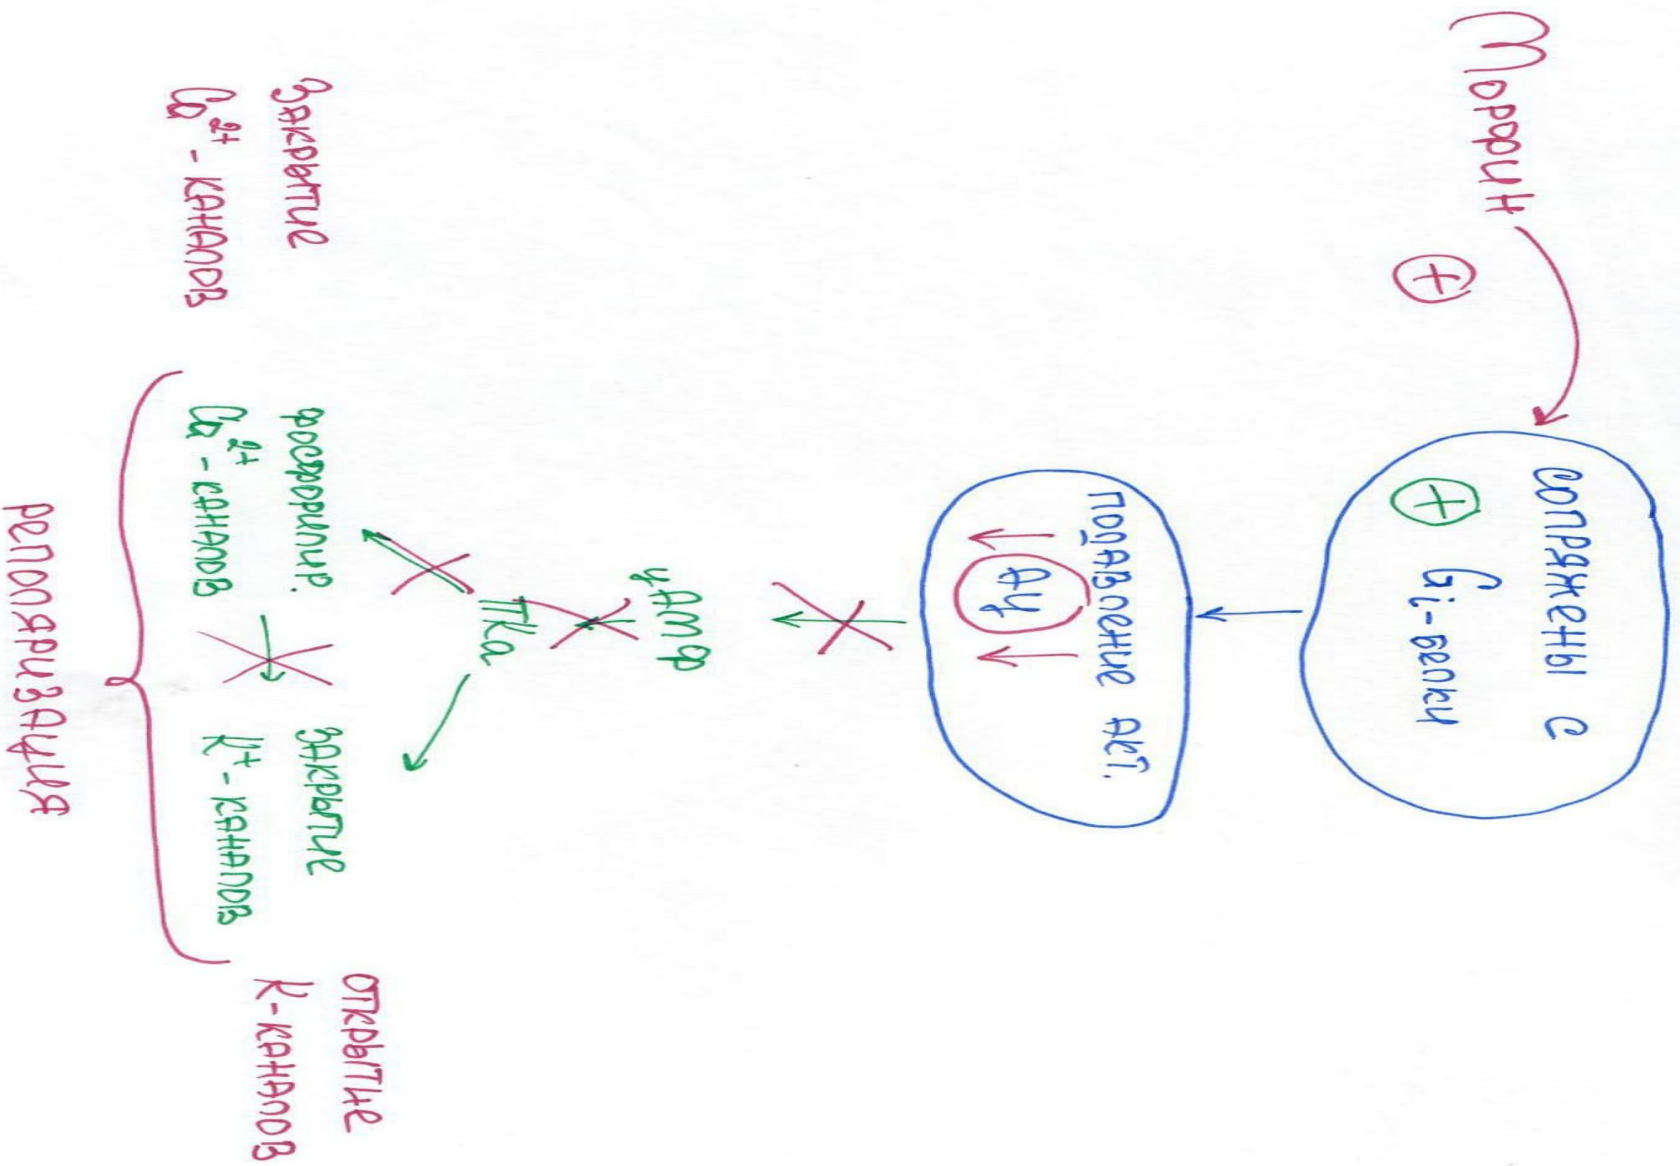 Морфин
+
сопряжены с
+ Gi-белки
подавление акт.
АЦ
цАМФ
ПКа
Закрытие
Ca²⁺ - каналов
фосфорилир.
Ca²⁺ - каналов
закрытие
K⁺ - каналов
открытие
К-каналов
реполяризация